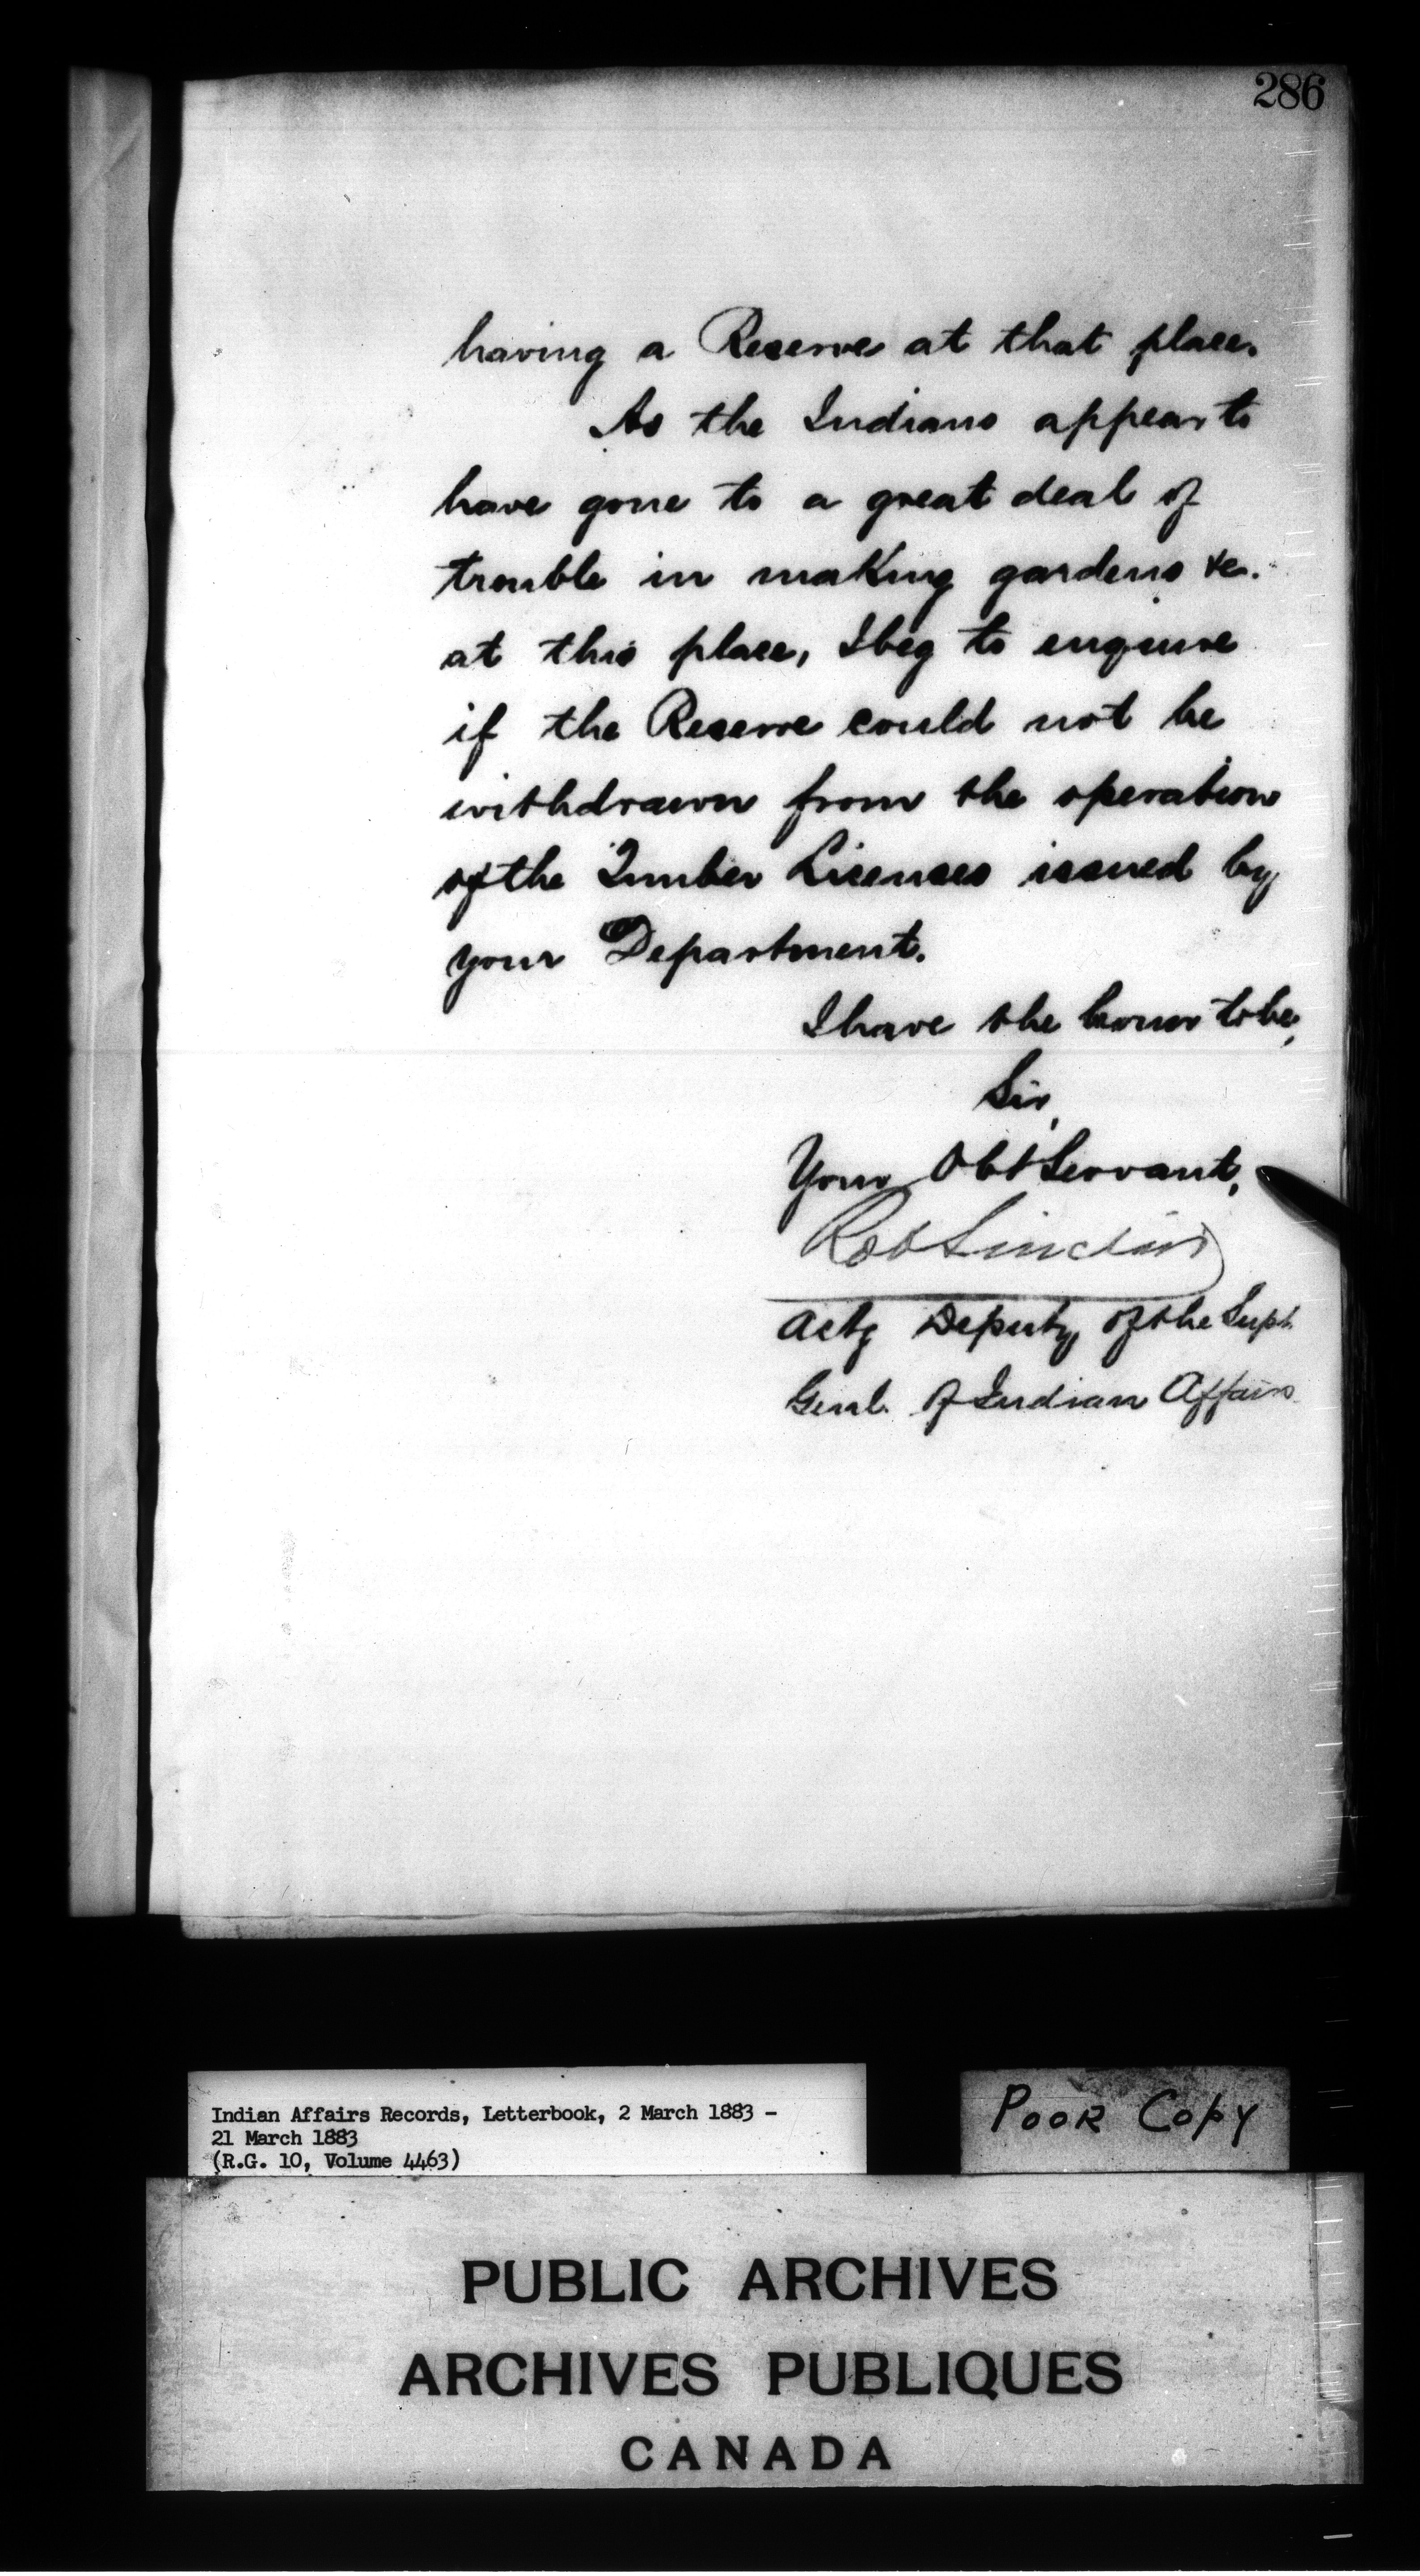 286
having a Reserve at that place.
As the Indians appear to
have gone to a great deal of
trouble in making gardens &c.
at this place, I beg to enquire
if the Reserve could not be
withdrawn from the operation
of the Timber Licenses issued by
your Department.
I have the honor to be,
Sir,
Your Obt Servant,
Rob Sinclair
Actg Deputy of the Supt
Genl. of Indian Affairs
Indian Affairs Records, Letterbook, 2 March 1883 -
21 March 1883
(R.G. 10, Volume 4463)
POOR COPY
PUBLIC ARCHIVES
ARCHIVES PUBLIQUES
CANADA